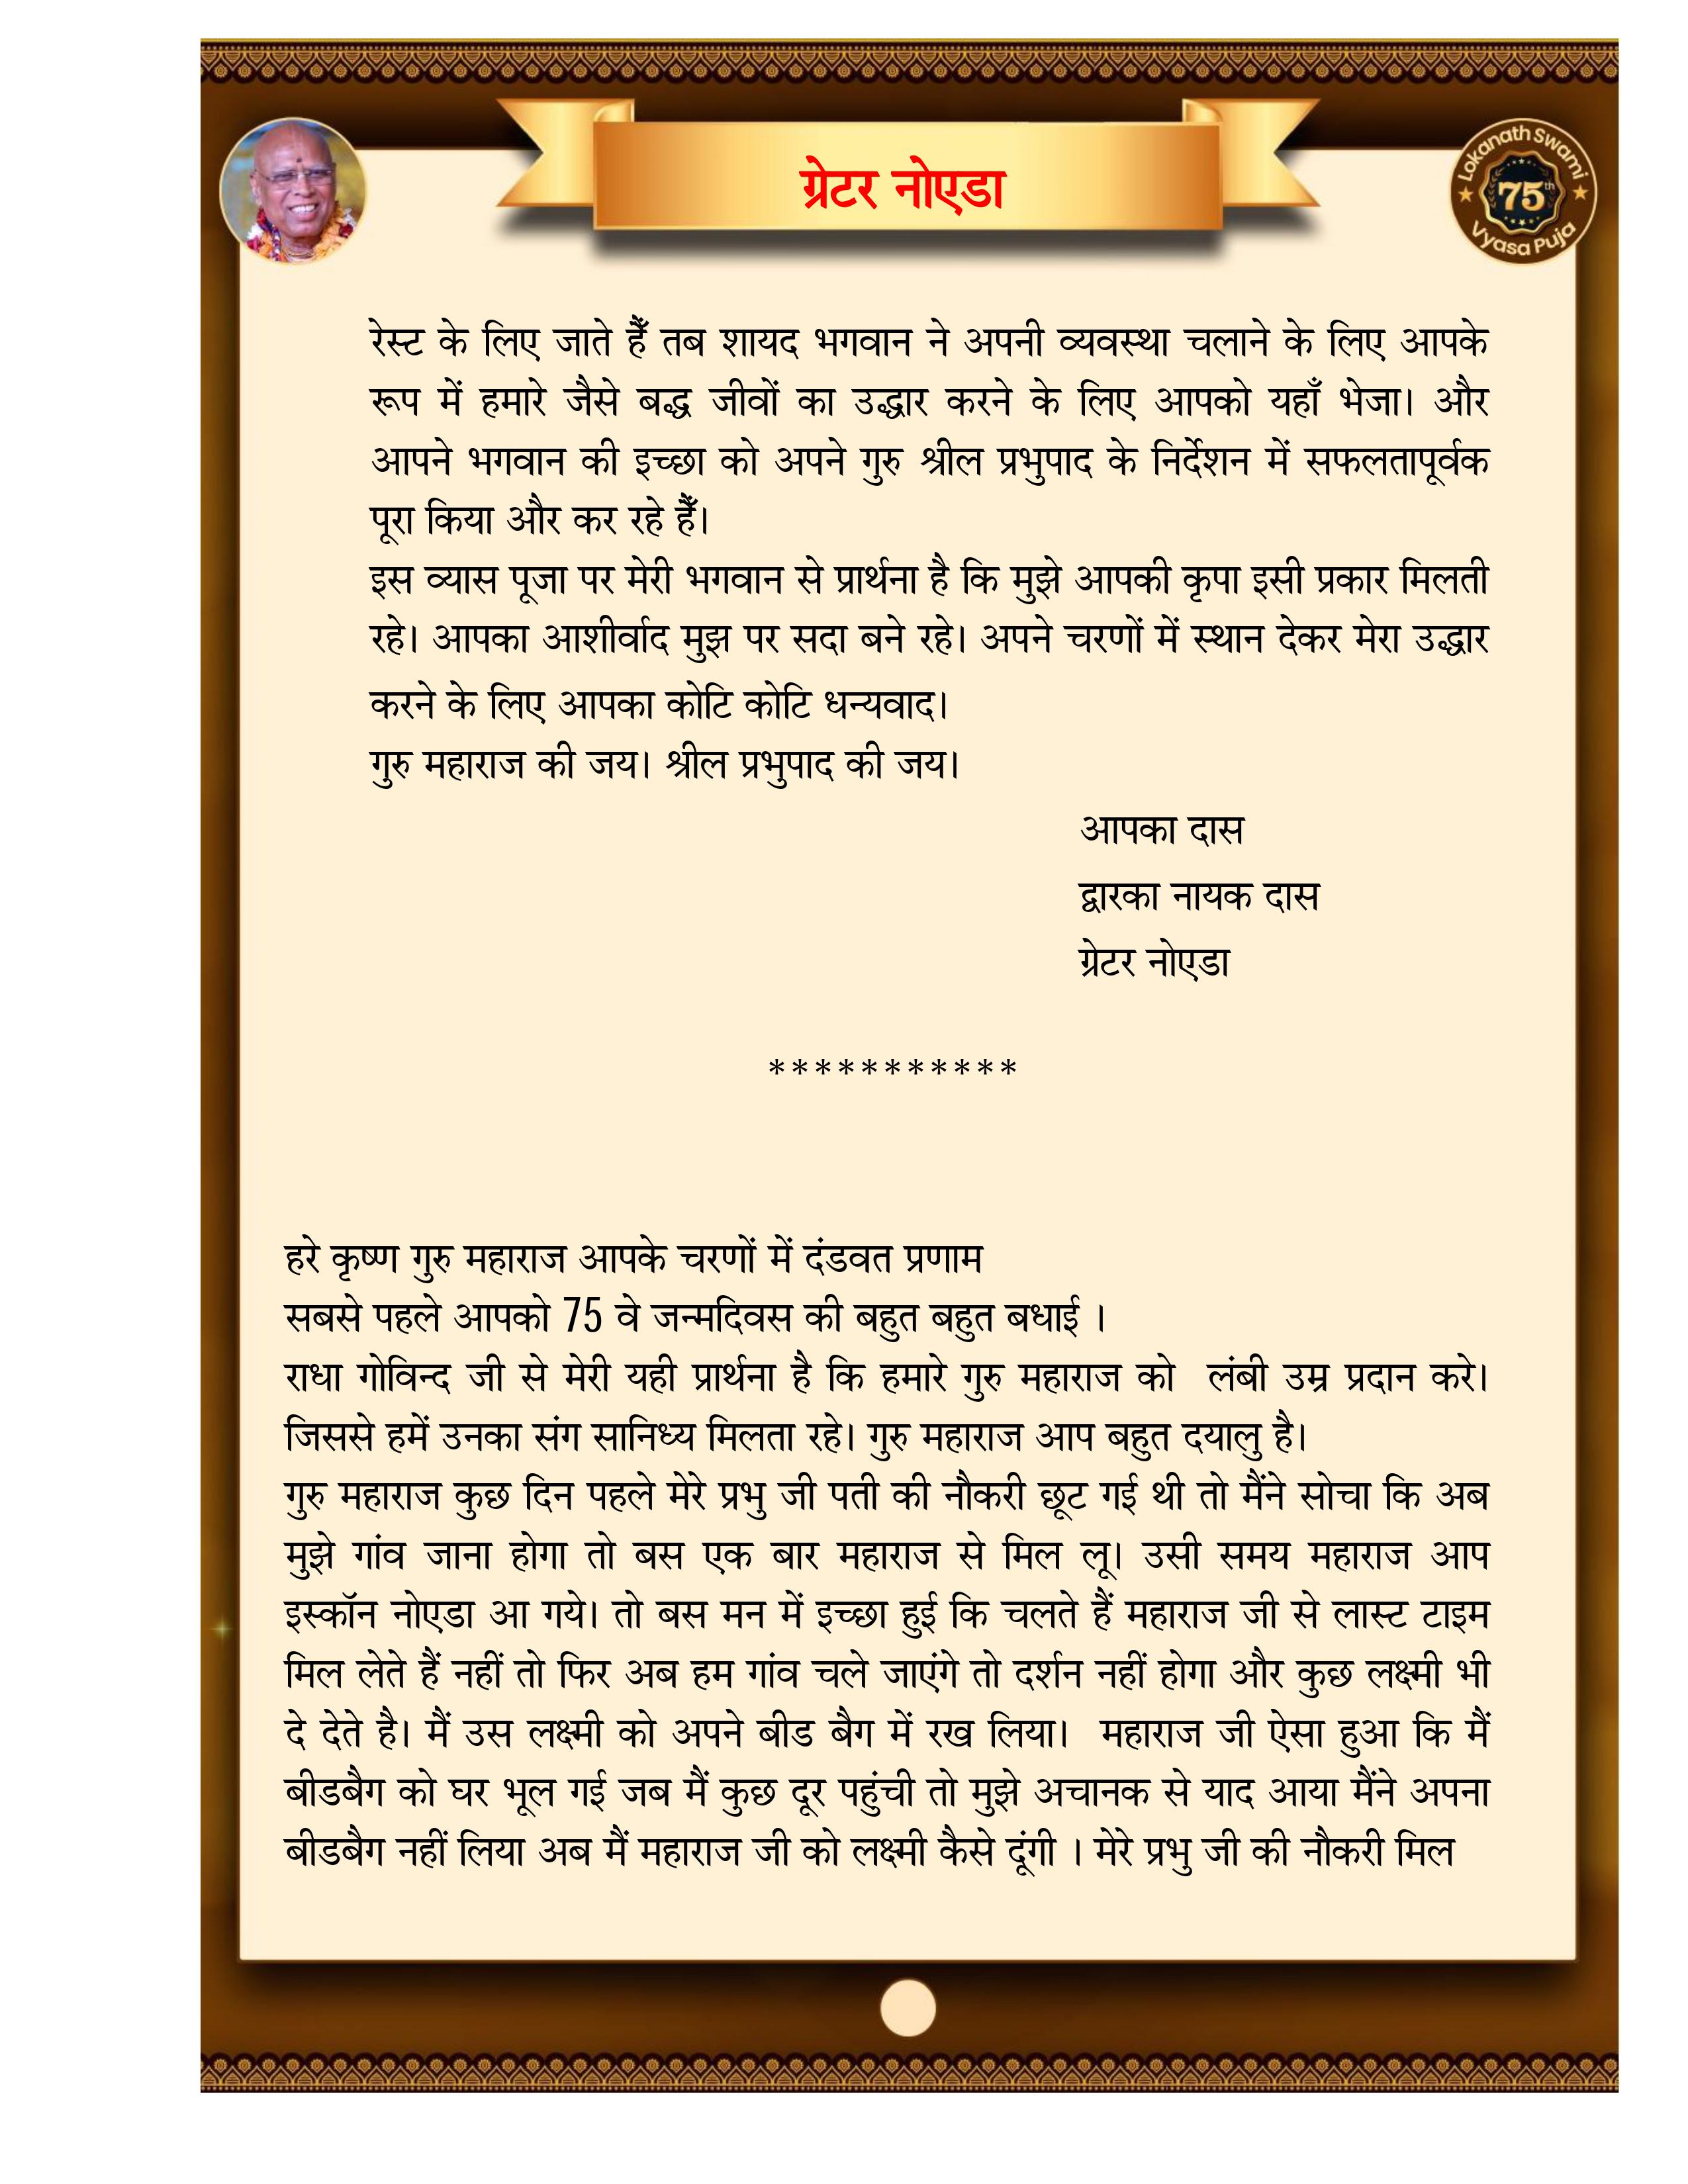 ग्रेटर नोएडा
Lokanath Swami
75th
Vyasa Puja
रेस्ट के लिए जाते हैं तब शायद भगवान ने अपनी व्यवस्था चलाने के लिए आपके
रूप में हमारे जैसे बद्ध जीवों का उद्धार करने के लिए आपको यहाँ भेजा। और
आपने भगवान की इच्छा को अपने गुरु श्रील प्रभुपाद के निर्देशन में सफलतापूर्वक
पूरा किया और कर रहे हैं।
इस व्यास पूजा पर मेरी भगवान से प्रार्थना है कि मुझे आपकी कृपा इसी प्रकार मिलती
रहे। आपका आशीर्वाद मुझ पर सदा बने रहे। अपने चरणों में स्थान देकर मेरा उद्धार
करने के लिए आपका कोटि कोटि धन्यवाद।
गुरु महाराज की जय। श्रील प्रभुपाद की जय।
आपका दास
द्वारका नायक दास
ग्रेटर नोएडा
***********
हरे कृष्ण गुरु महाराज आपके चरणों में दंडवत प्रणाम
सबसे पहले आपको 75 वे जन्मदिवस की बहुत बहुत बधाई ।
राधा गोविन्द जी से मेरी यही प्रार्थना है कि हमारे गुरु महाराज को लंबी उम्र प्रदान करे।
जिससे हमें उनका संग सानिध्य मिलता रहे। गुरु महाराज आप बहुत दयालु है।
गुरु महाराज कुछ दिन पहले मेरे प्रभु जी पती की नौकरी छूट गई थी तो मैंने सोचा कि अब
मुझे गांव जाना होगा तो बस एक बार महाराज से मिल लू। उसी समय महाराज आप
इस्कॉन नोएडा आ गये। तो बस मन में इच्छा हुई कि चलते हैं महाराज जी से लास्ट टाइम
मिल लेते हैं नहीं तो फिर अब हम गांव चले जाएंगे तो दर्शन नहीं होगा और कुछ लक्ष्मी भी
दे देते है। मैं उस लक्ष्मी को अपने बीड बैग में रख लिया। महाराज जी ऐसा हुआ कि मैं
बीडबैग को घर भूल गई जब मैं कुछ दूर पहुंची तो मुझे अचानक से याद आया मैंने अपना
बीडबैग नहीं लिया अब मैं महाराज जी को लक्ष्मी कैसे दूंगी । मेरे प्रभु जी की नौकरी मिल